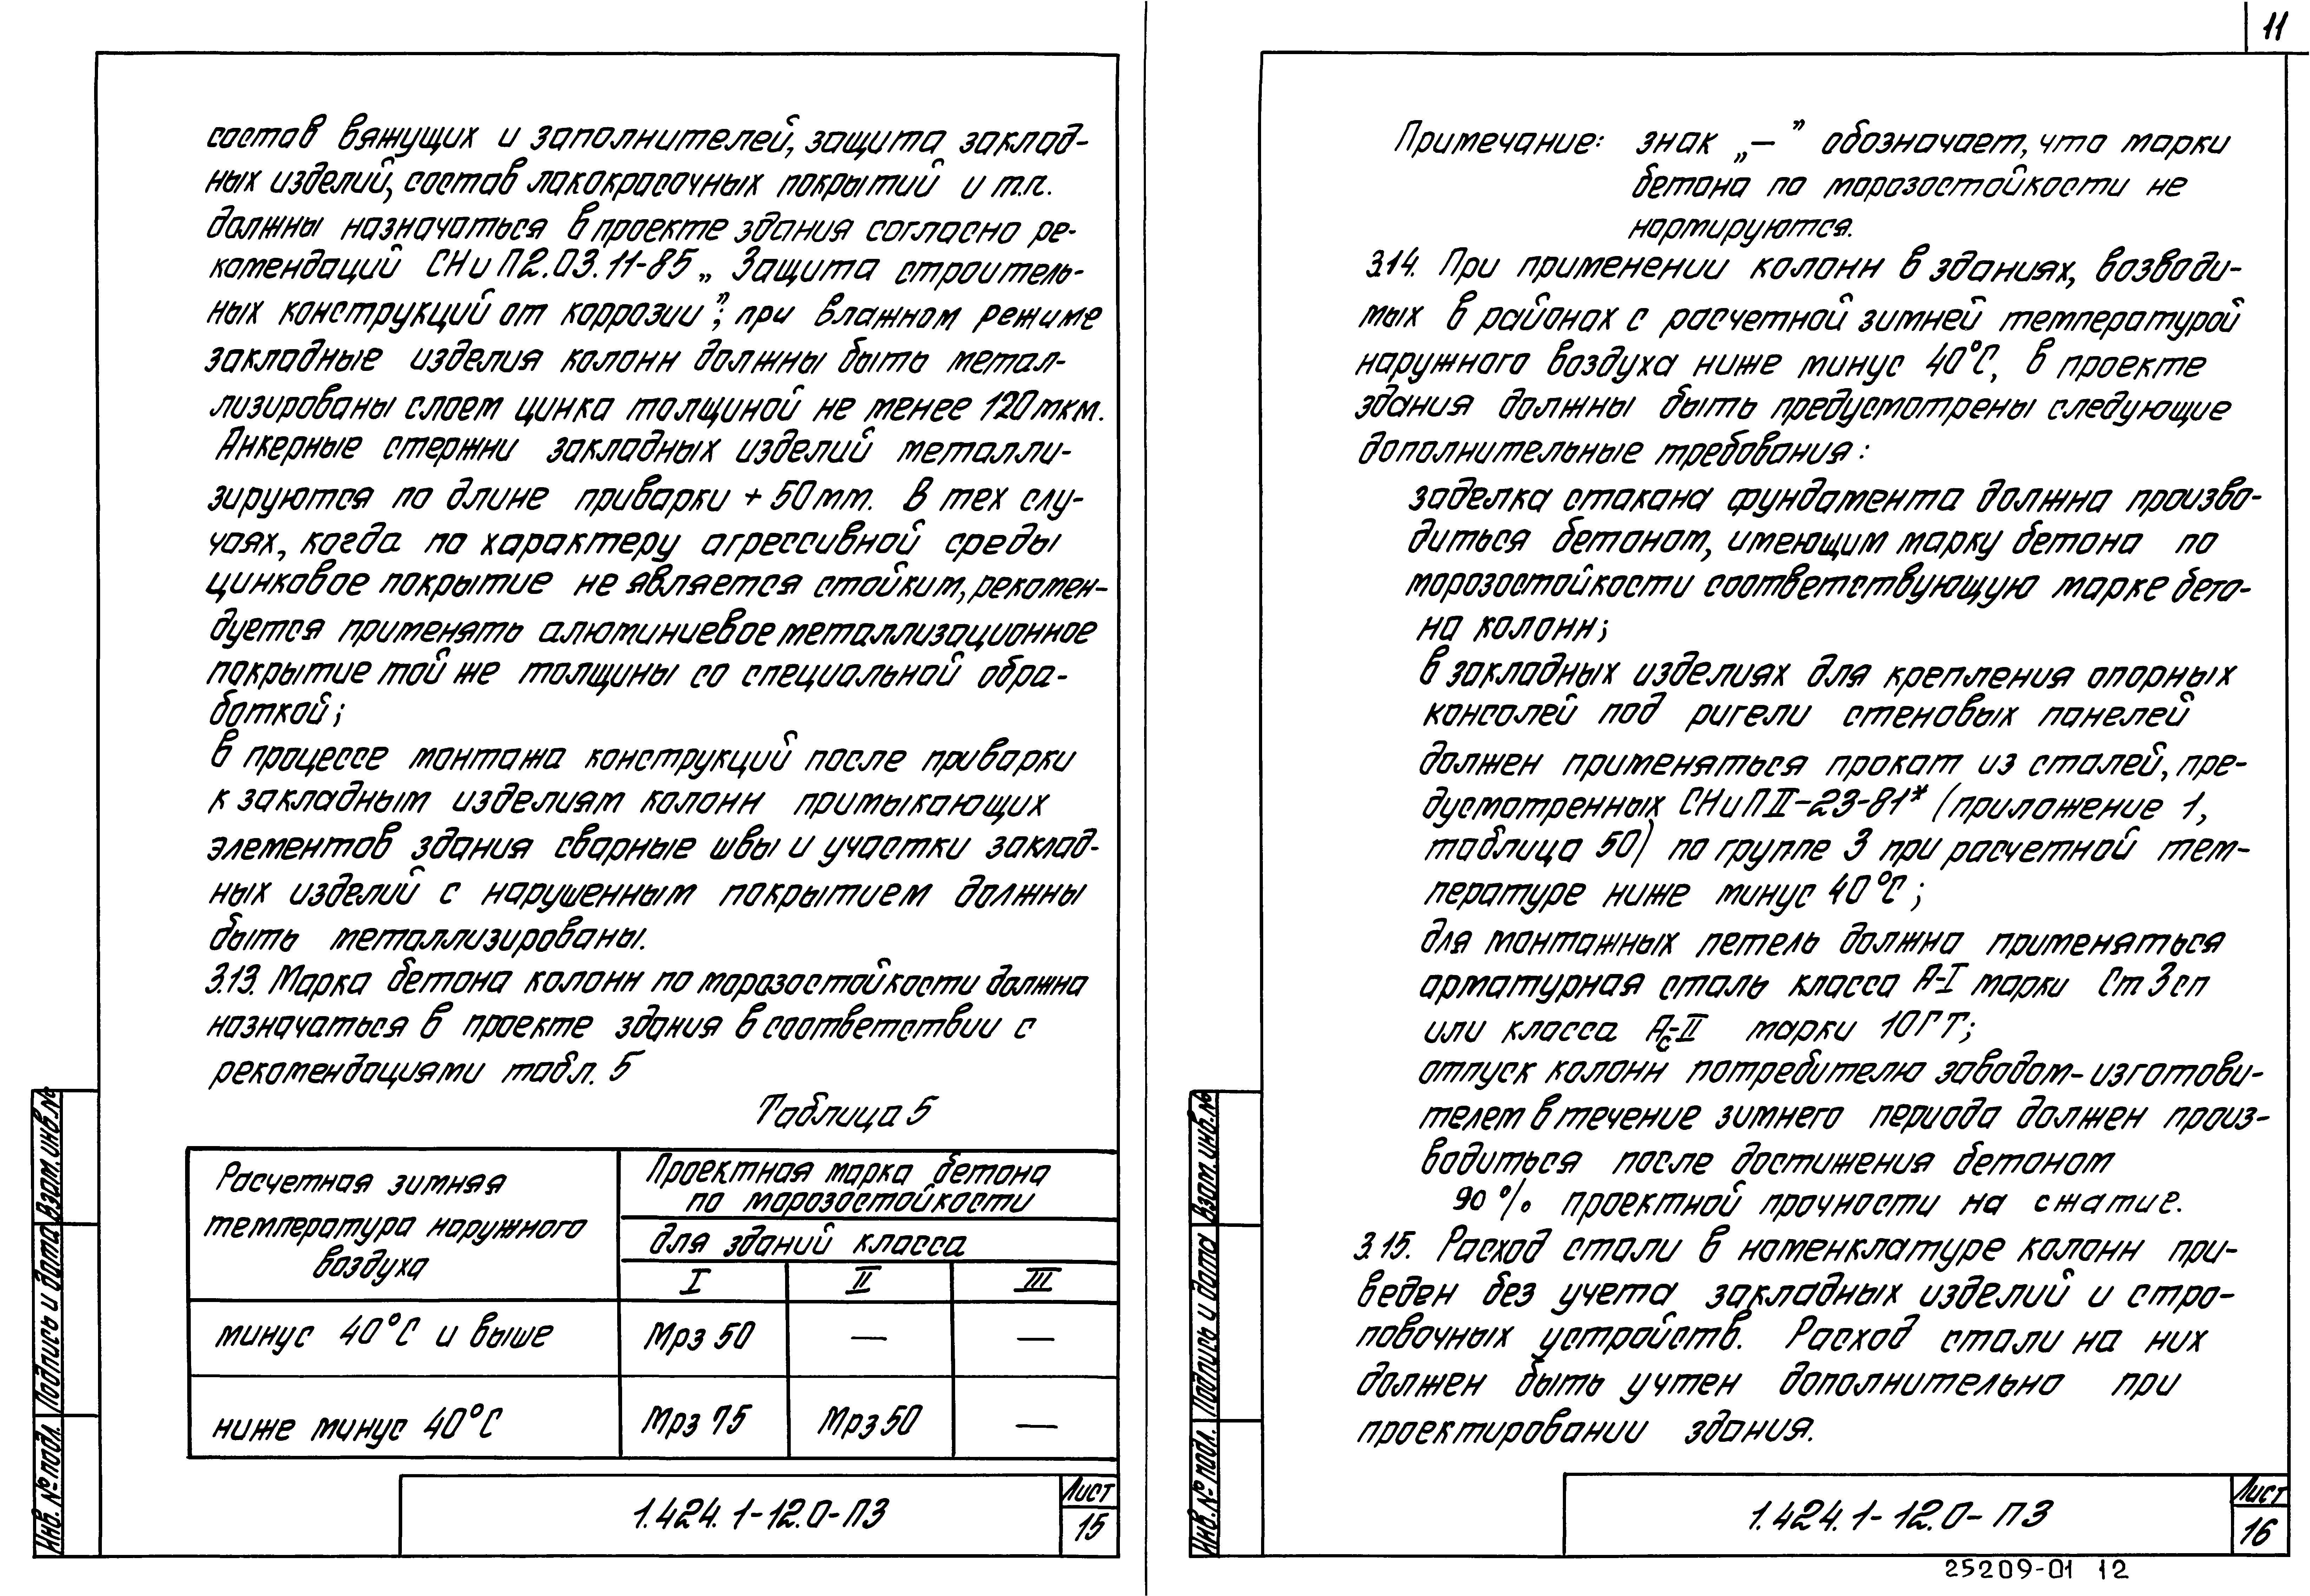 состав вяжущих и заполнителей, защита заклад-
ных изделий, состав лакокрасочных покрытий и т.п.
должны назначаться в проекте здания согласно ре-
комендаций СНиП2.03.11-85 „Защита строитель-
ных конструкций от коррозии”; при влажном режиме
закладные изделия колонн должны быть метал-
лизированы слоем цинка толщиной не менее 120мкм.
Анкерные стержни закладных изделий металли-
зируются по длине приварки + 50мм. В тех слу-
чаях, когда по характеру агрессивной среды
цинковое покрытие не является стойким, рекомен-
дуется применять алюминиевое металлизационное
покрытие той же толщины со специальной обра-
боткой;
в процессе монтажа конструкций после приварки
к закладным изделиям колонн примыкающих
элементов здания сварные швы и участки заклад-
ных изделий с нарушенным покрытием должны
быть металлизированы.
3.13. Марка бетона колонн по морозостойкости должна
назначаться в проекте здания в соответствии с
рекомендациями табл. 5
Таблица 5
Расчетная зимняя
температура наружного
воздуха
Проектная марка бетона
по морозостойкости
для зданий класса
I II III
минус 40°С и выше Мрз 50 — —
ниже минус 40°С Мрз 75 Мрз 50 —
1.424.1-12.0-ПЗ
Лист
15
Инв. № подл. Подпись и дата Взам. инв. №
11
Примечание: знак „—” обозначает, что марки
бетона по морозостойкости не
нормируются.
3.14. При применении колонн в зданиях, возводи-
мых в районах с расчетной зимней температурой
наружного воздуха ниже минус 40°С, в проекте
здания должны быть предусмотрены следующие
дополнительные требования:
заделка стакана фундамента должна произво-
диться бетоном, имеющим марку бетона по
морозостойкости соответствующую марке бето-
на колонн;
в закладных изделиях для крепления опорных
консолей под ригели стеновых панелей
должен применяться прокат из сталей, пре-
дусмотренных СНиПII-23-81* (приложение 1,
таблица 50) по группе 3 при расчетной тем-
пературе ниже минус 40°С;
для монтажных петель должна применяться
арматурная сталь класса А-I марки Ст 3сп
или класса Ас-II марки 10ГТ;
отпуск колонн потребителю заводом-изготови-
телем в течение зимнего периода должен произ-
водиться после достижения бетоном
90% проектной прочности на сжатие.
3.15. Расход стали в номенклатуре колонн при-
веден без учета закладных изделий и стро-
повочных устройств. Расход стали на них
должен быть учтен дополнительно при
проектировании здания.
1.424.1-12.0-ПЗ
Лист
16
Инв. № подл. Подпись и дата Взам. инв. №
25209-01 12